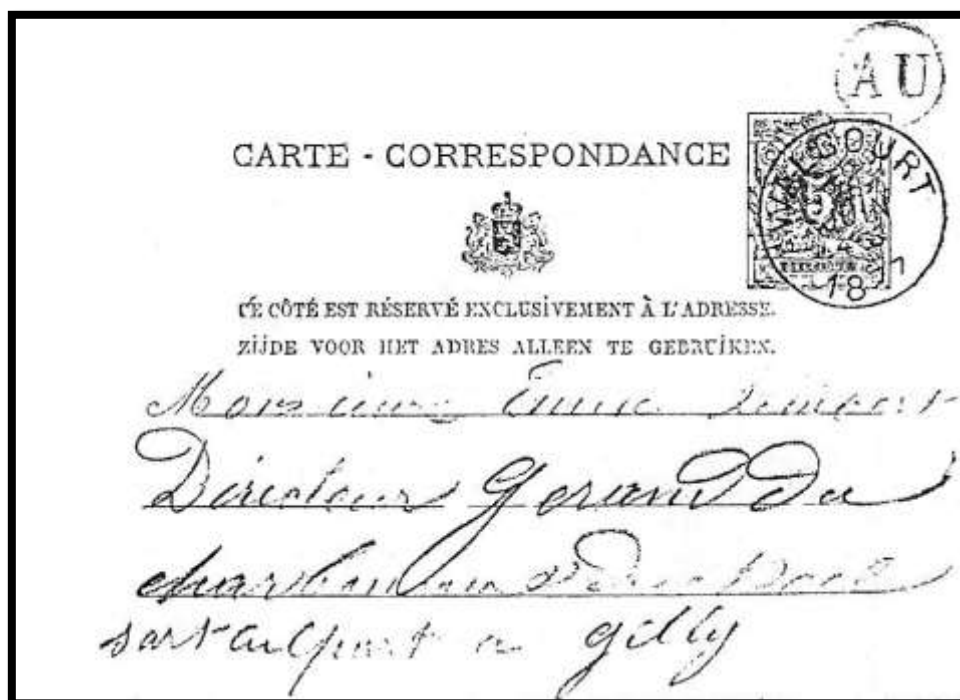 AU
CARTE - CORRESPONDANCE
WALCOURT
5
JUIN
18
CE CÔTÉ EST RÉSERVÉ EXCLUSIVEMENT À L'ADRESSE.
ZIJDE VOOR HET ADRES ALLEEN TE GEBRUIKEN.
Monsieur
Directeur Gerand du
sart culpart a gilly